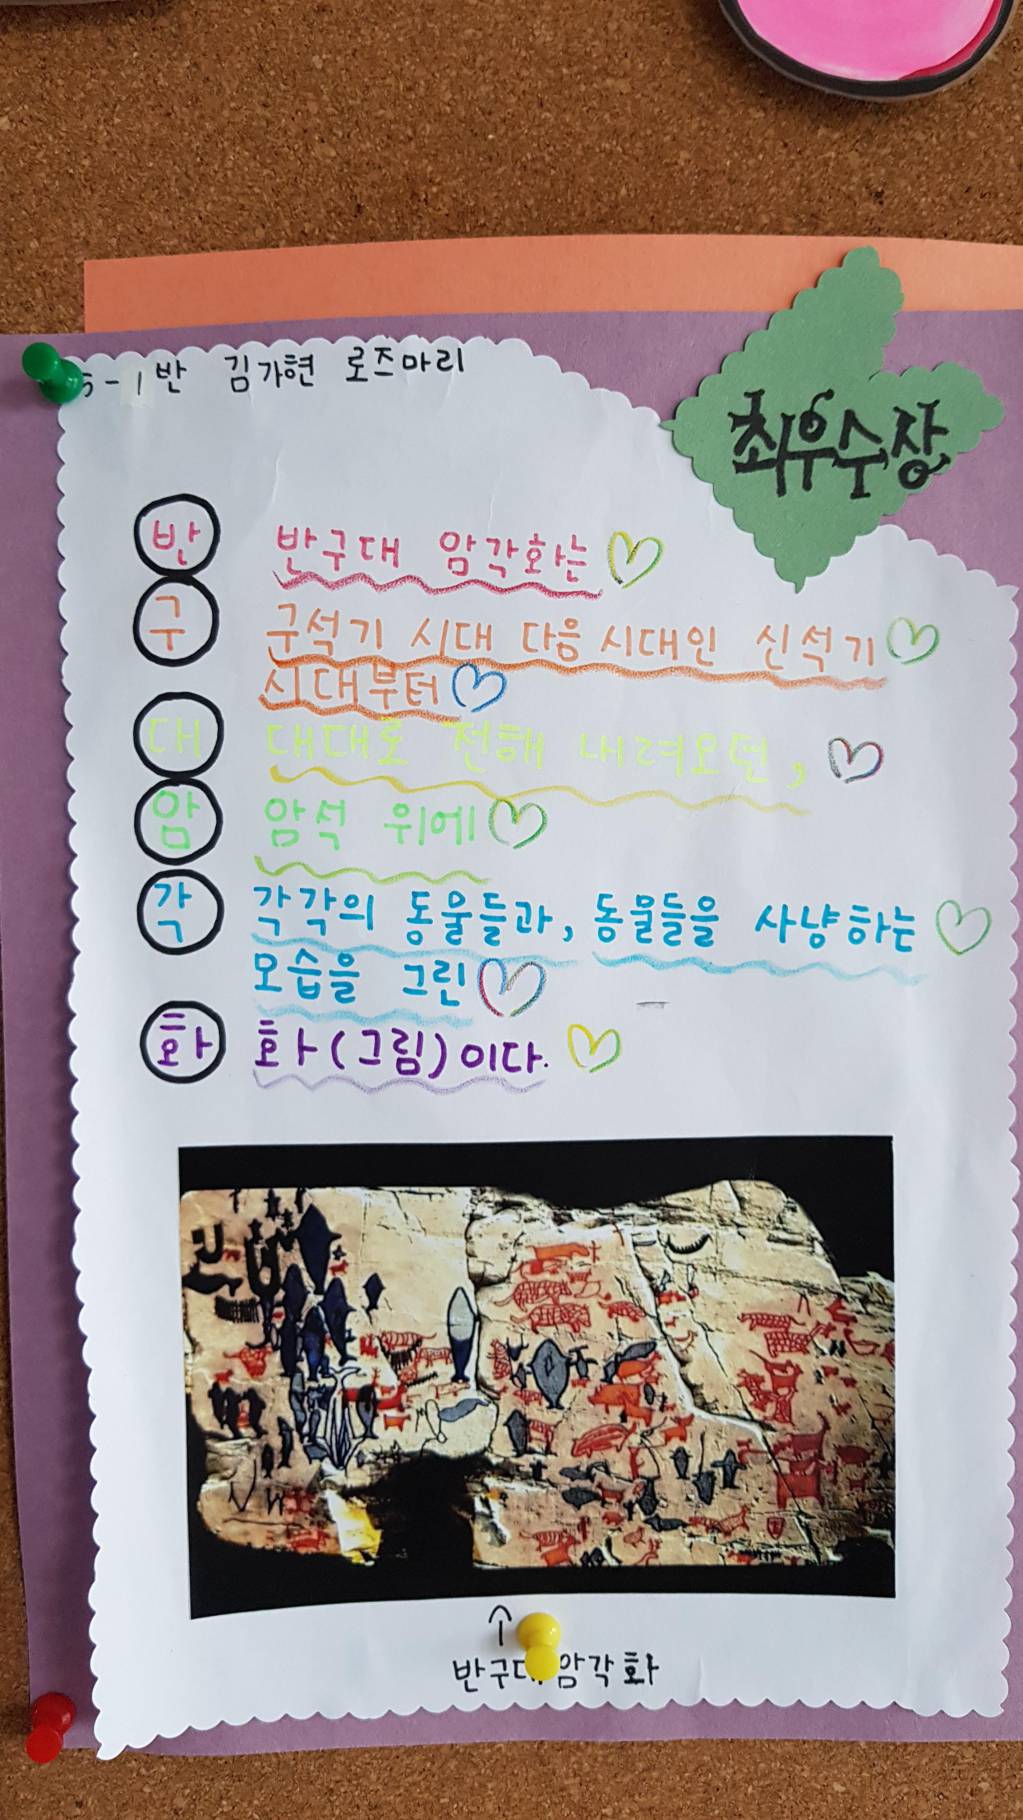 5-1반 김가현 로즈마리
최우수상
반 반구대 암각화는
구 구석기 시대 다음 시대인 신석기
시대부터
대 대대로 전해 내려오던,
암 암석 위에
각 각각의 동물들과, 동물들을 사냥하는
모습을 그린
화 화(그림)이다.
↑
반구대 암각화